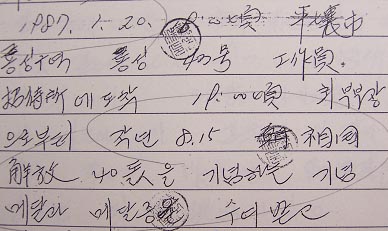 1987. 1. 20. 頃 平壤市
룡성구역 룡성 号 工作員
招待所에 도착 19:00頃 최부부장
으로부터 작년 8.15 祖国
解放 40돐을 기념하는 기념
메달과 메달증 수여 받고